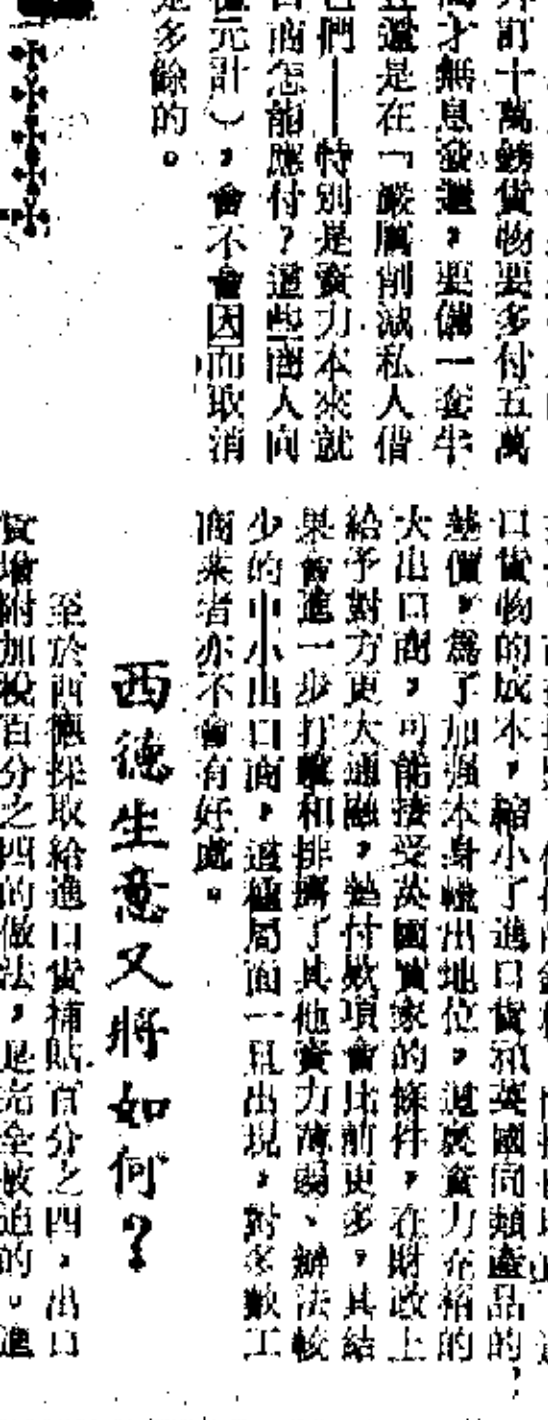 訂十萬鎊貨物要多付五萬
才無息發還，要備一套牛
還是在「嚴厲削減私人借
們——特別是資力本來就
商怎能應付？這些商人向
元計），會不會因而取消
是多餘的。
口貨物的成本，縮小了進口貨和英國同類產品的
差價。為了加強本身輸出地位，這麼資力充裕的
大出口商，可能接受英國買家的條件，在財政上
給予對方更大通融，墊付欵項會比前更多，其結
果會進一步打擊和排擠了其他資力薄弱、辦法較
少的中小出口商，這種局面一旦出現，對多數工
商業者亦不會有好處。
西德生意又將如何？
至於西德採取給進口貨補貼百分之四，出口
貨增附加稅百分之四的做法，是完全被迫的。進